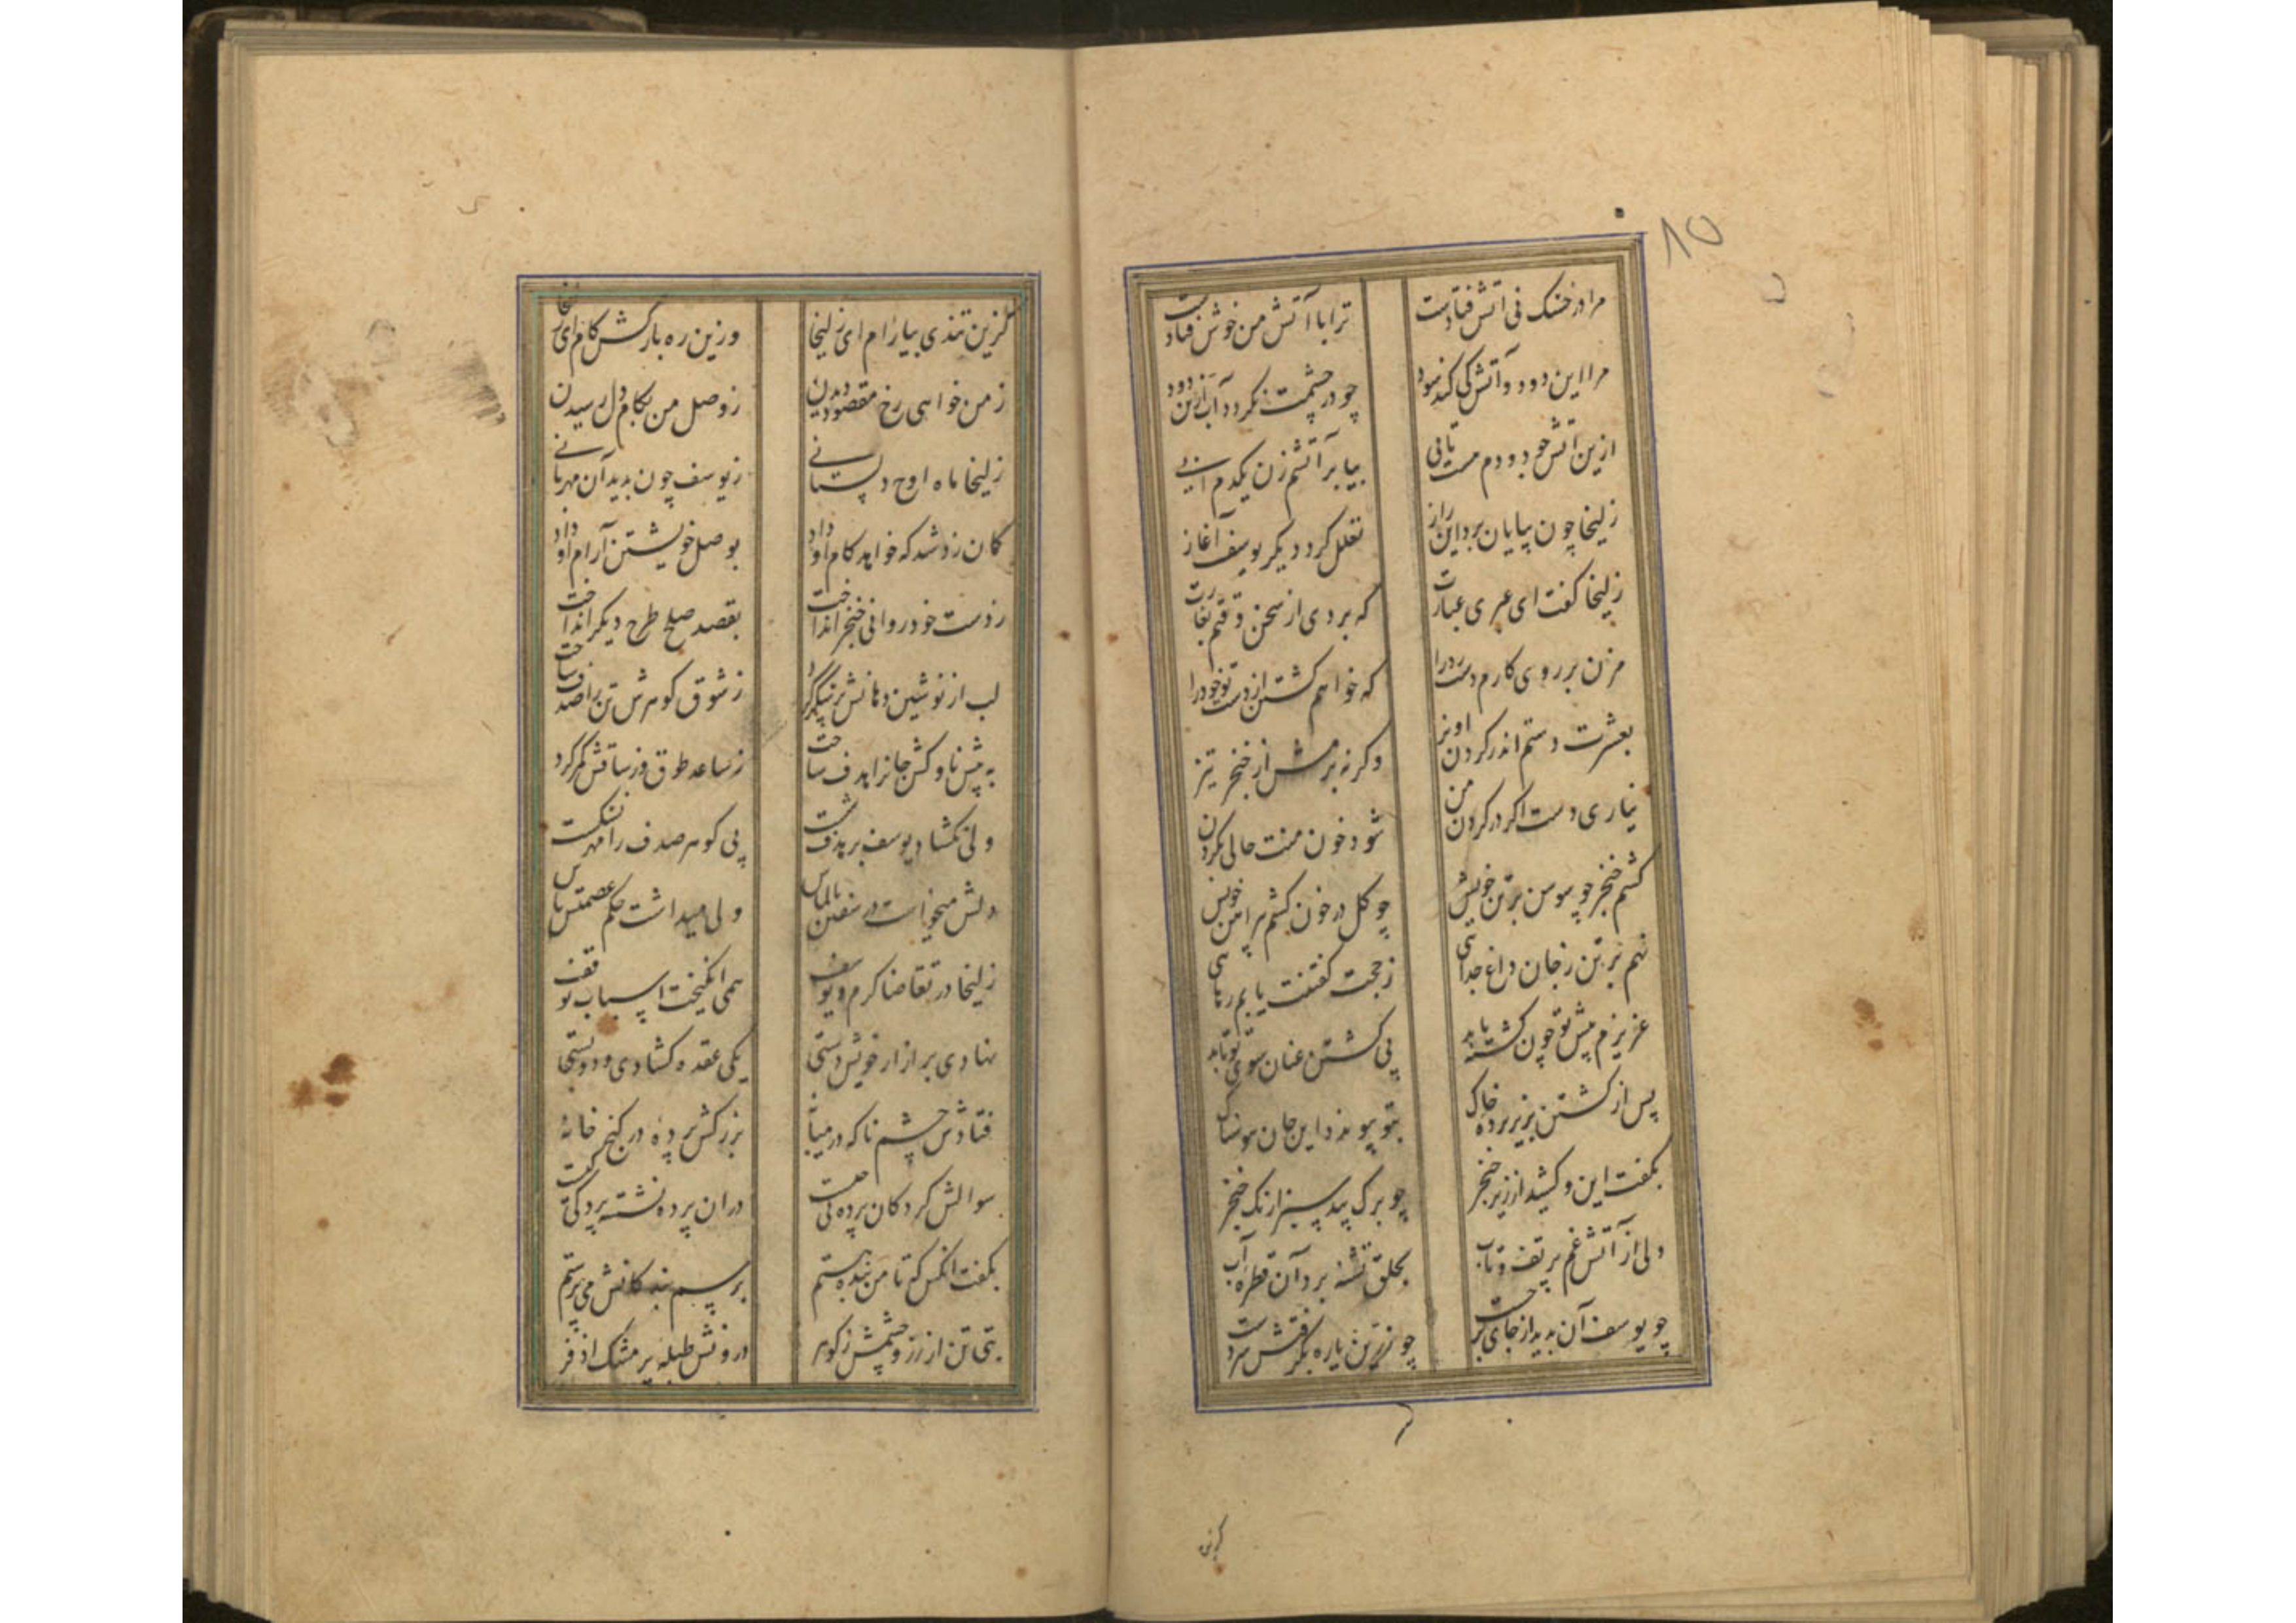 ۸۵
مرا در خشک نی آتش فتادست ترا با آتش من خوش فتادست
مرا این دود و آتش کی کند سود چو در چشمت نگردد آب ازین دود
ازین آتش چو دودم هست تابی بیا بر آتشم زن یکدم آبی
زلیخا چون بپایان برد این راز تعلل کرد دیگر یوسف آغاز
زلیخا گفت ای عبری عبارت که بردی از سخن وقتم بغارت
مزن بر روی کارم دست رد را که خواهم کشتن از دست تو خود را
بعشرت دستم اندر گردن آویز وگرنه برمش از خنجر تیز
نیاری دست اگر در گردن من شود خون منت حالی بگردن
کشم خنجر چو سوسن بر تن خویش چو گل در خون کشم پیراهن خویش
نهم بر تن ز جان داغ جدائی ز حجت گفتنت یابم رهائی
عزیزم پیش تو چون کشته یابد پی کشتن عنان سوی تو تابد
پس از کشتن بزیر پرده خاک بتو پیوندد این جان هوسناک
بگفت این و کشید از زیر خنجر چو برگ بید سبز ارنگ خنجر
ولی از آتش غم پر تف و تاب بحلق تشنه برد آن قطره آب
چو یوسف آن بدید از جای برجست چو زرین یاره بگرفتش سر دست
کزین
کزین تندی بیارام ای زلیخا وزین ره بازکش گام ای زلیخا
ز من خواهی رخ مقصود دیدن ز وصل من بکام دل رسیدن
زلیخا ماه اوج دلستانی ز یوسف چون بدید آن مهربانی
گمان زد شد که خواهد کام او داد بوصل خویشتن آرام او داد
ز دست خود روانی خنجر انداخت بقصد صلح طرح دیگر انداخت
لب از نوشین دهانش پر شکر کرد ز ساعد طوق وز ساقش کمر کرد
به پیش ناوکش جان را هدف ساخت ز شوق گوهرش تن را صدف ساخت
ولی نگشاد یوسف بر هدف شست پی گوهر صدف را مهر نشکست
دلش میخواست در سفتن بالماس ولی میداشت حکم عصمتش پاس
زلیخا در تقاضا گرم و یوسف همی انگیخت اسباب توقف
نهادی بر ازار خویش دستی یکی عقده گشادی و دو بستی
فتادش چشم ناگه در میانه بزرکش پرده در کنج خانه
سوالش کرد کان پرده پی چیست در آن پرده نشسته پردگی کیست
بگفت آنکس که تا من بنده هستم برسم بندگانش می پرستم
بتی تن از زر و چشمش ز گوهر درونش طبله پر مشک اذفر